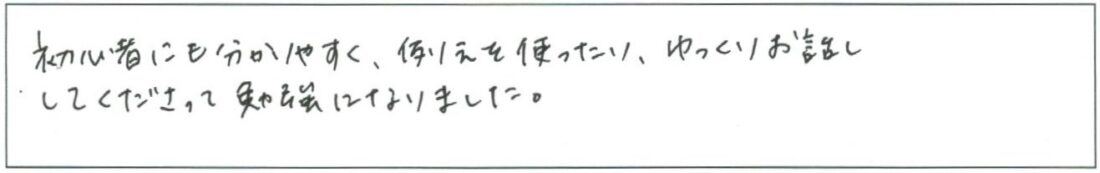 初心者にも分かりやすく、例えを使ったり、ゆっくりお話し
してくださって勉強になりました。